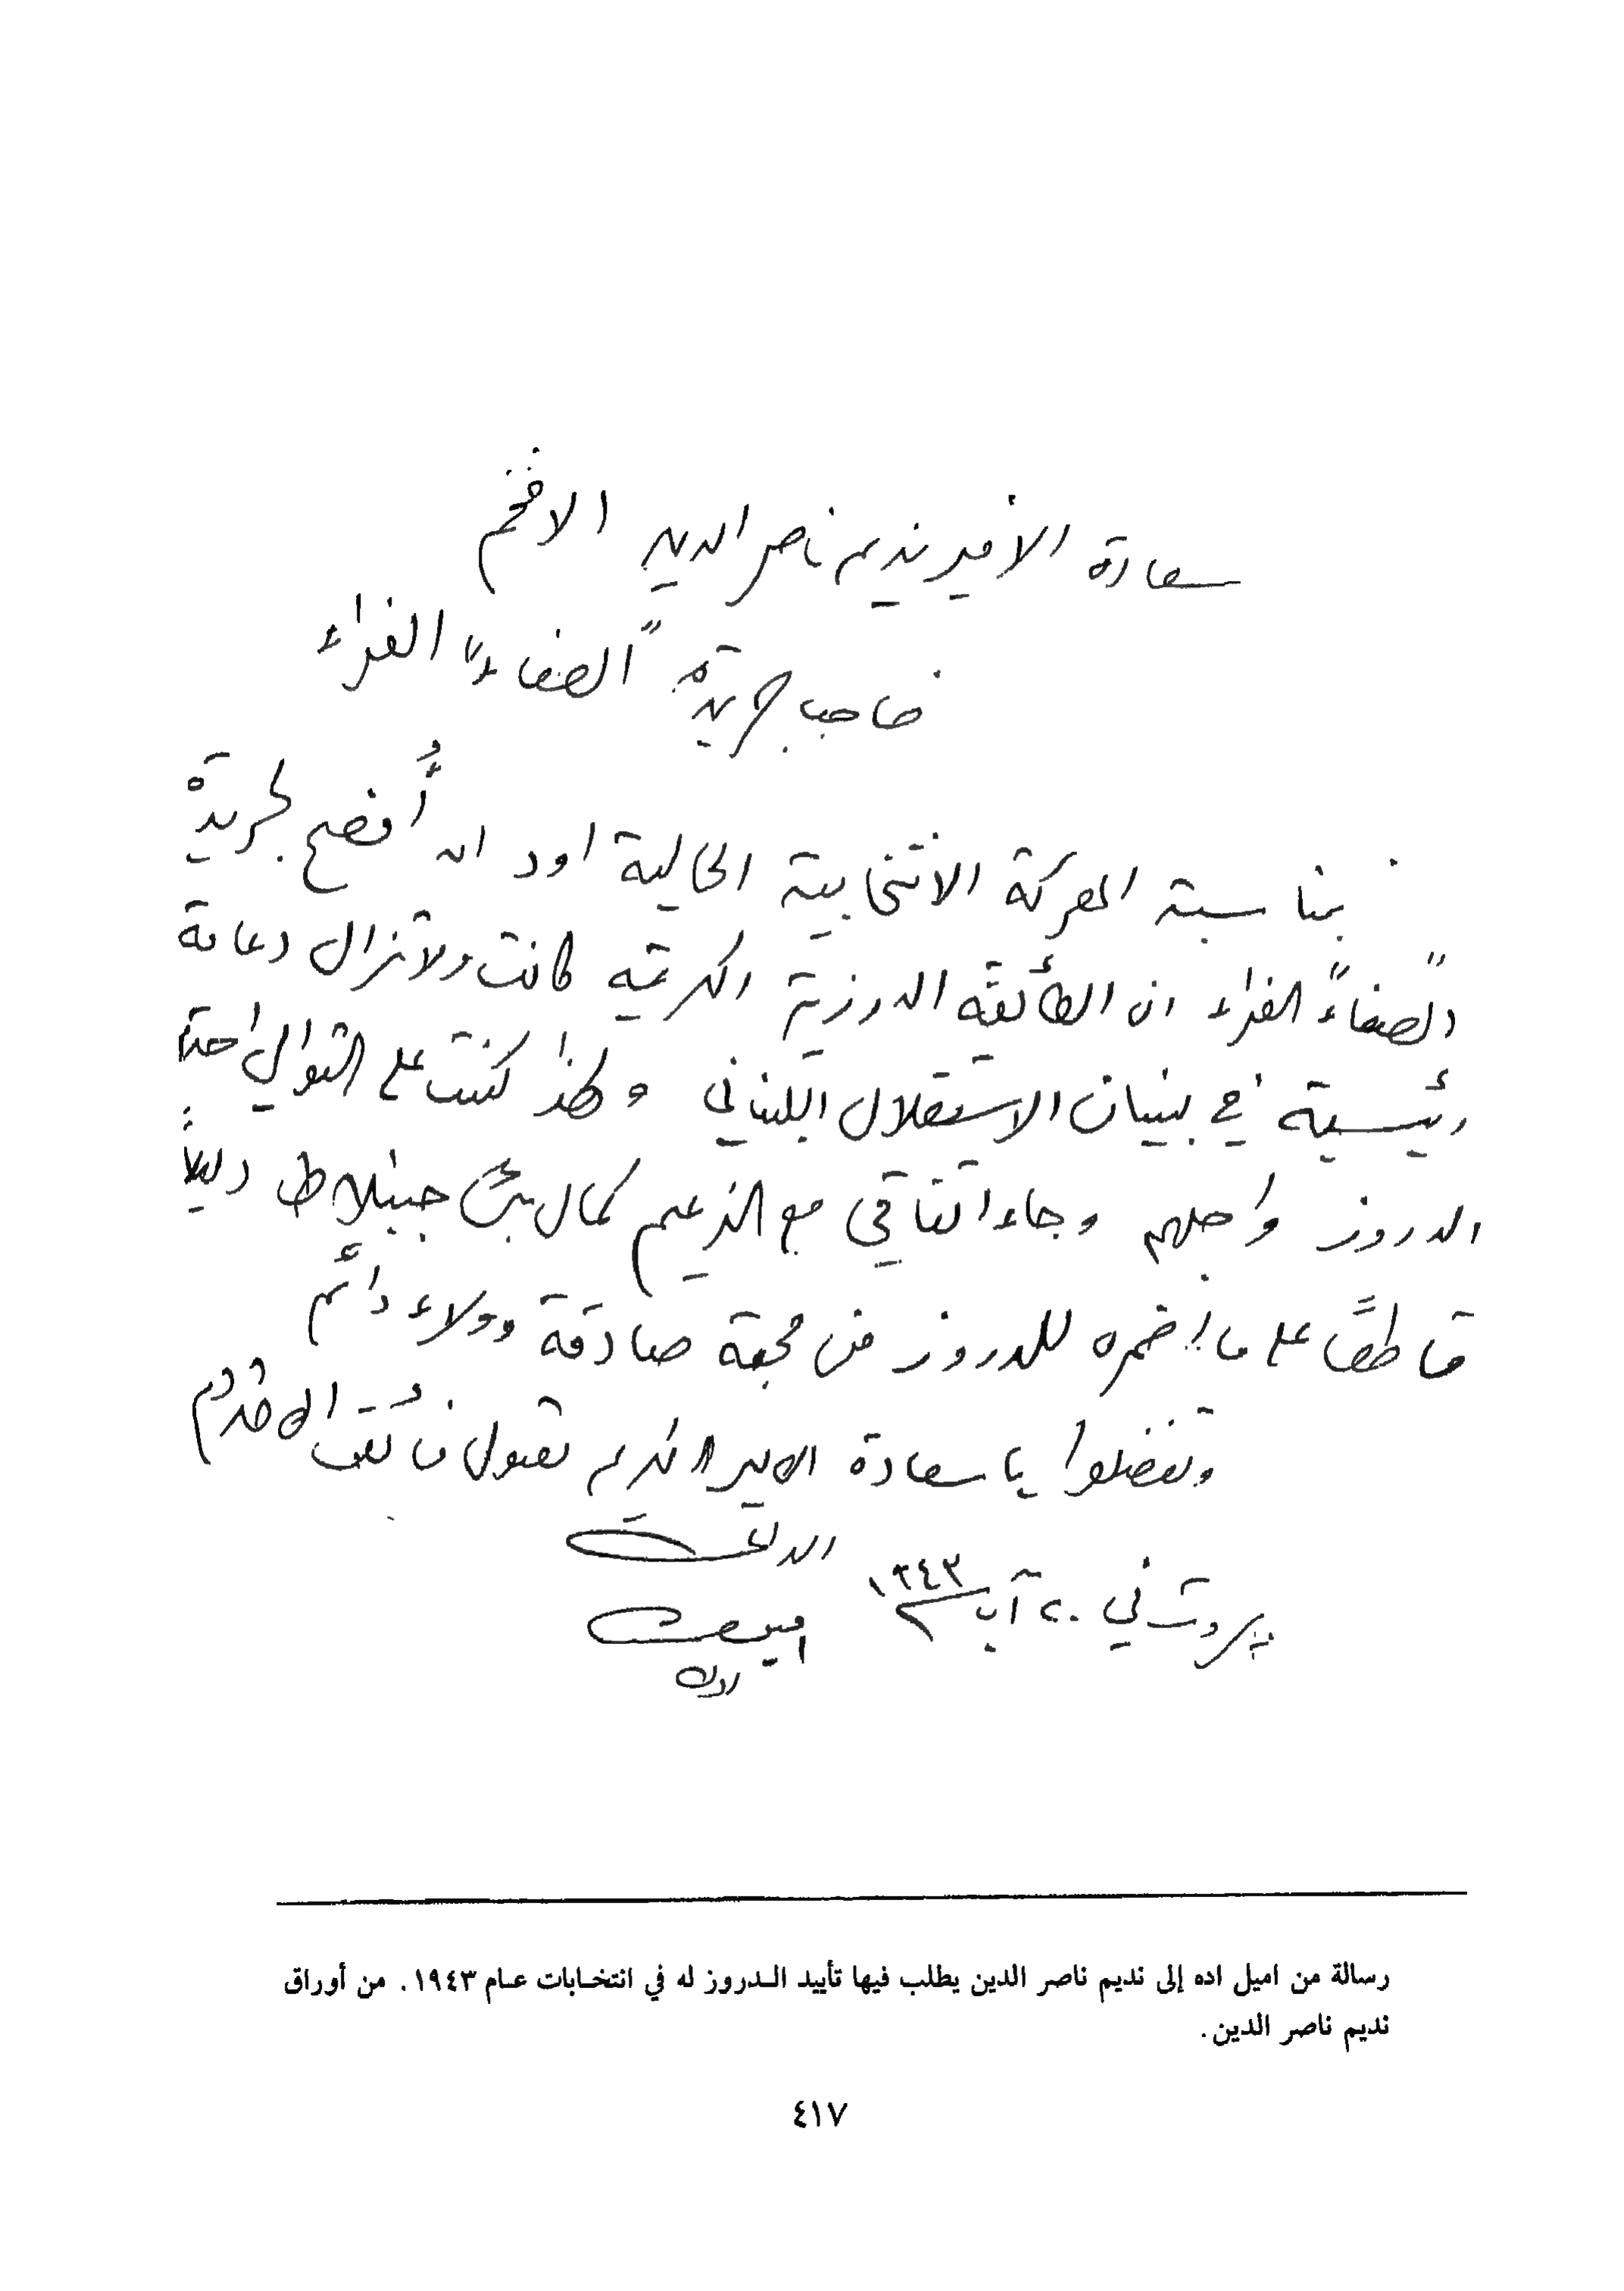 سعادة الامير نديم ناصر الدين الافخم
صاحب جريدة "الصفاء" الغراء
بمناسبة المعركة الانتخابية الحالية اود ان أفصح لجريدة
"الصفاء" الغراء ان الطائفة الدرزية الكريمة كانت ولا تزال دعامة
رئيسية في بنيان الاستقلال اللبناني ولهذا كنت على التوالي احترم
الدروز واجلهم وجاء اتفاقي مع الزعيم كمال بك جنبلاط دليلاً
قاطعاً على ما اضمره للدروز من محبة صادقة وولاء دائم
وتفضلوا يا سعادة الامير الكريم بقبول فائق الاحترام
بيروت في ٢٠ آب ١٩٤٣
اميل
اده
رسالة من اميل اده إلى نديم ناصر الدين يطلب فيها تأييد الـدروز له في انتخـابات عـام ١٩٤٣. من أوراق
نديم ناصر الدين.
٤١٧